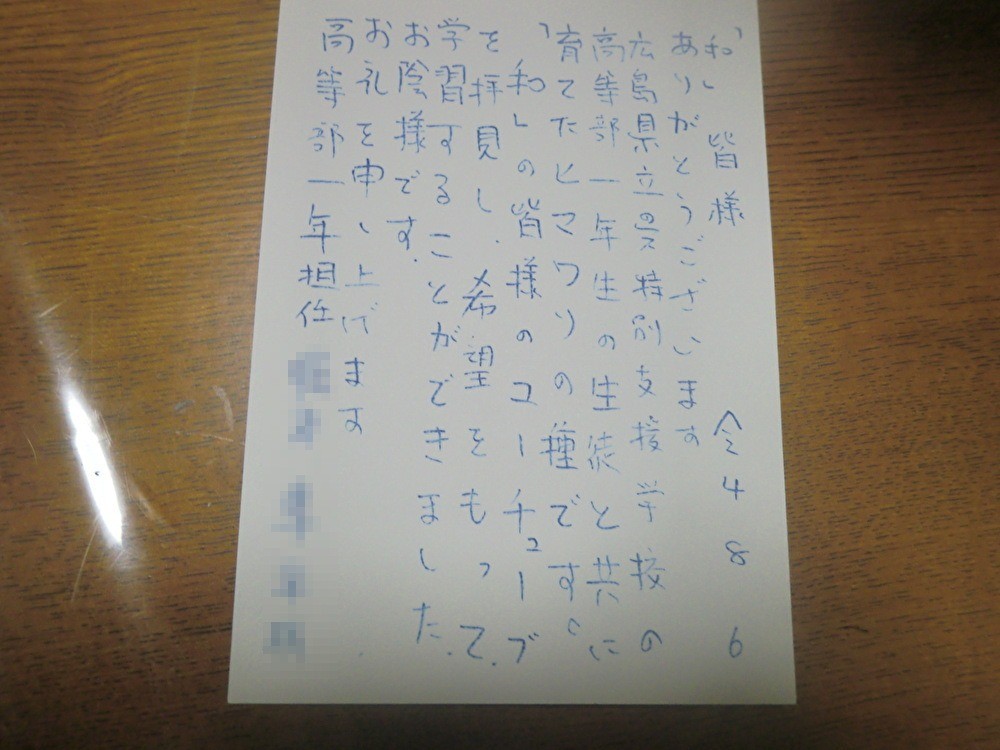 「和」 皆様 令4 8 6
ありがとうございます
広島県立呉特別支援学校の
高等部一年生の生徒と共に
育てたヒマワリの種です。
「和」の皆様のユーチューブ
を拝見し、希望をもって、
学習することができました。
お陰様です。
お礼を申し上げます
高等部一年担任